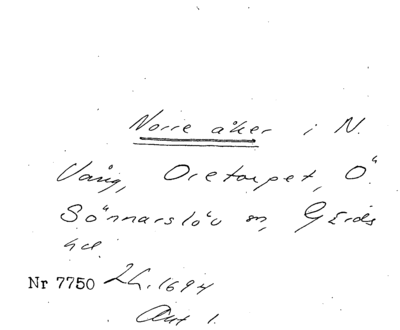 Norre åker i N.
Vång, Oretorpet, Ö.
Sönnarslöv sn, Gärds
hd.
Nr 7750 Lh. 1694
Akt 1.